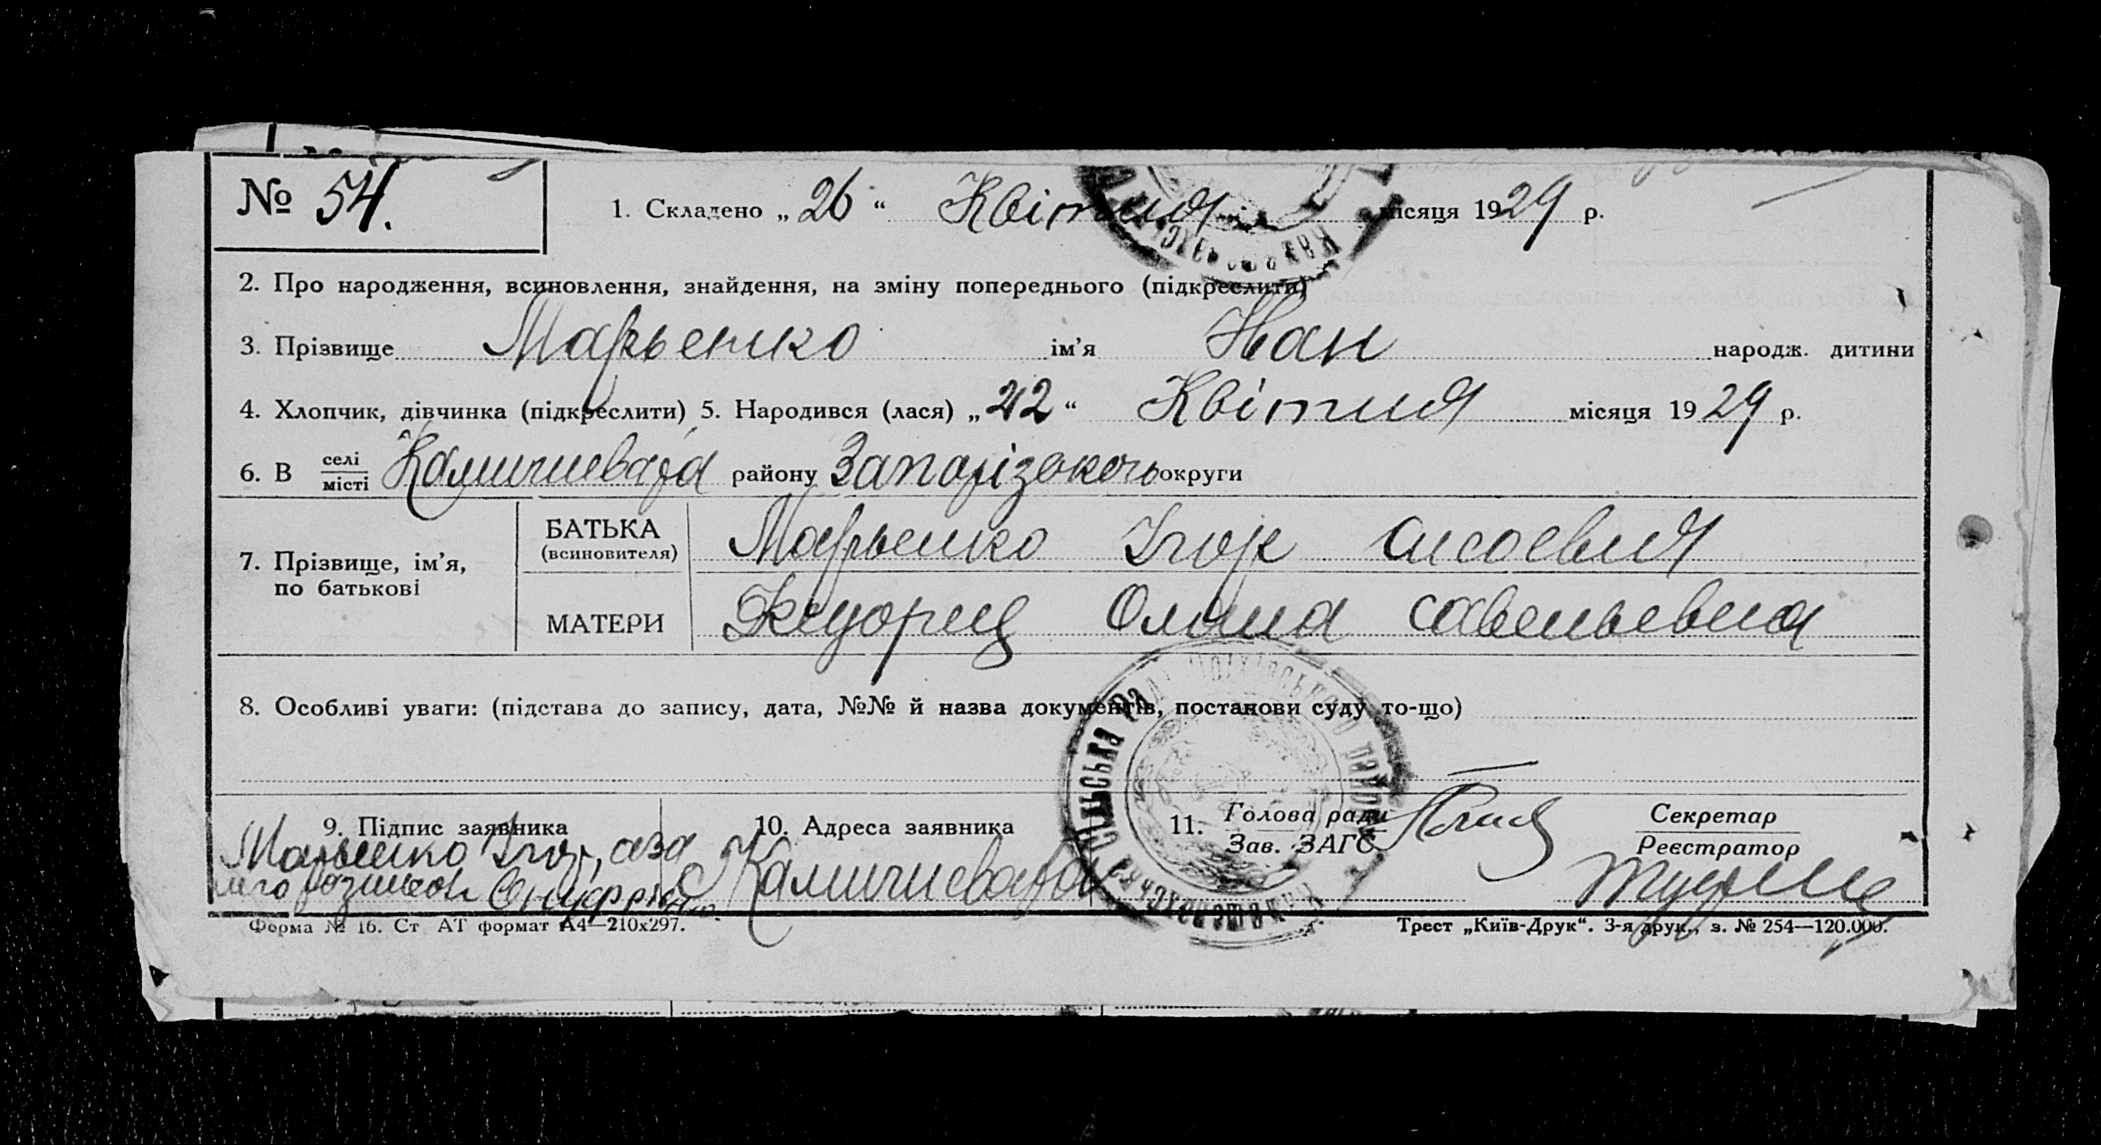 № 54. 1. Складено „ 26 “ Квітня місяця 1929 р.
2. Про народження, всиновлення, знайдення, на зміну попереднього (підкреслити)
3. Прізвище Марьенко ім'я Иван народж. дитини
4. Хлопчик, дівчинка (підкреслити) 5. Народився (лася) „ 22 “ Квітня місяця 1929 р.
6. В селі
місті району Запорізокоь округи
7. Прізвище, ім'я,
по батькові
БАТЬКА
(всиновителя)
Марьенко Ігор
МАТЕРИ
Оляна савельевна
8. Особливі уваги: (підстава до запису, дата, №№ й назва документів, постанови суду то-що)
9. Підпис заявника
Марьенко Ігор, аза
10. Адреса заявника
11. Голова ради
Зав. ЗАГС
Секретар
Реєстратор
Форма № 16. Ст АТ формат А4—210х297.
Трест „Київ-Друк“. 3-я друк., з. № 254—120.000.